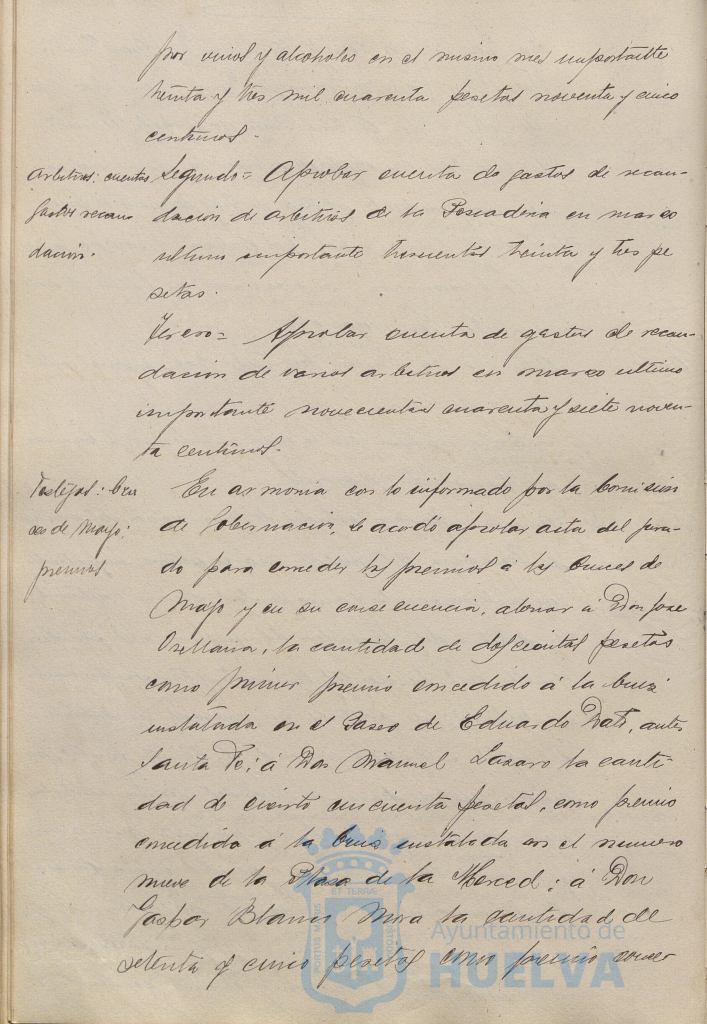 por vinos y alcoholes en el mismo mes importante
treinta y tres mil cuarenta pesetas noventa y cinco
centimos.
Arbitrios: cuentas
gastos recau
dación.
Segundo = Aprobar cuenta de gastos de recau-
dación de arbitrios de la Pescaderia en marzo
ultimo importante trescientas treinta y tres pe
setas.
Tercero = Aprobar cuenta de gastos de recau-
dación de varios arbitrios en marzo ultimo
importante novecientas cuarenta y siete noven-
ta centimos.
Festejos: Cru
ces de Mayo:
premios
En armonia con lo informado por la Comision
de Gobernación, se acordó aprobar acta del jura-
do para conceder los premios á las Cruces de
Mayo y en su consecuencia, abonar á Don Jose
Orellana, la cantidad de doscientas pesetas
como primer premio concedido á la Cruz
instalada en el Paseo de Eduardo Dato, antes
Santa Fe; á Don Manuel Lazaro la canti-
dad de ciento cincuenta pesetas, como premio
concedido á la Cruz instalada en el numero
nueve de la Plaza de la Merced; á Don
Gaspar Blanco Mora la cantidad de
setenta y cinco pesetas como premio conce
Ayuntamiento de
HUELVA